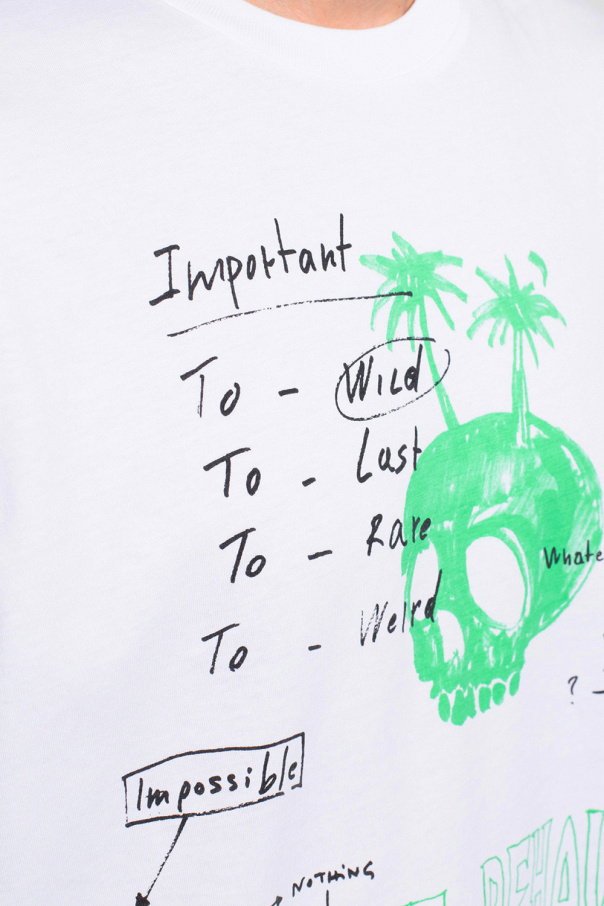 Important
To - Wild
To - Last
To - Rare
To - Weird
Whate
?
Impossible
NOTHING